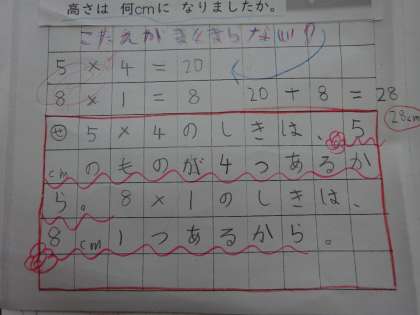 高さは 何cmに なりましたか。
こたえがまくまらない!?
5 × 4 = 20
8 × 1 = 8 20 + 8 = 28
28cm
せ 5×4のしきは、5
cmのものが4つあるか
ら。8×1のしきは、
8cm1つあるから。